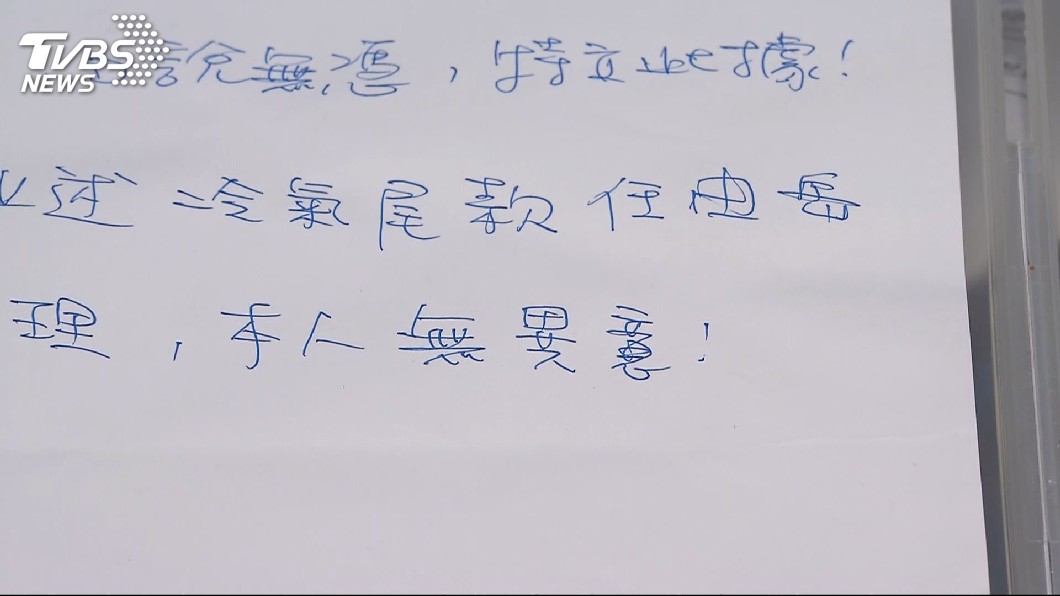 TVBS
NEWS
說無憑，特立此據！
述冷氣尾款任由岳
理，本人無異意！